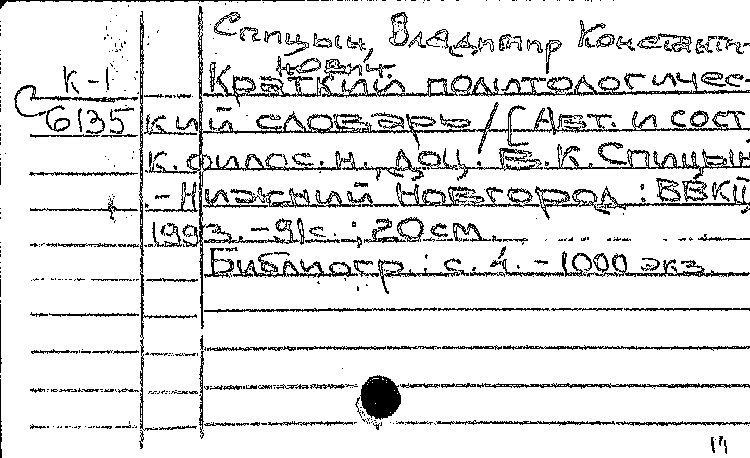 Спицын, Владимир Константи-
нович.
К-1
6135
Краткий политологичес-
кий словарь / [Авт. и сост.
к. филос. н., доц. В. К. Спицын
. - Нижний Новгород : ВВКЦ,
1993. - 91 с. ; 20 см.
Библиогр.: с. 4. - 1000 экз.